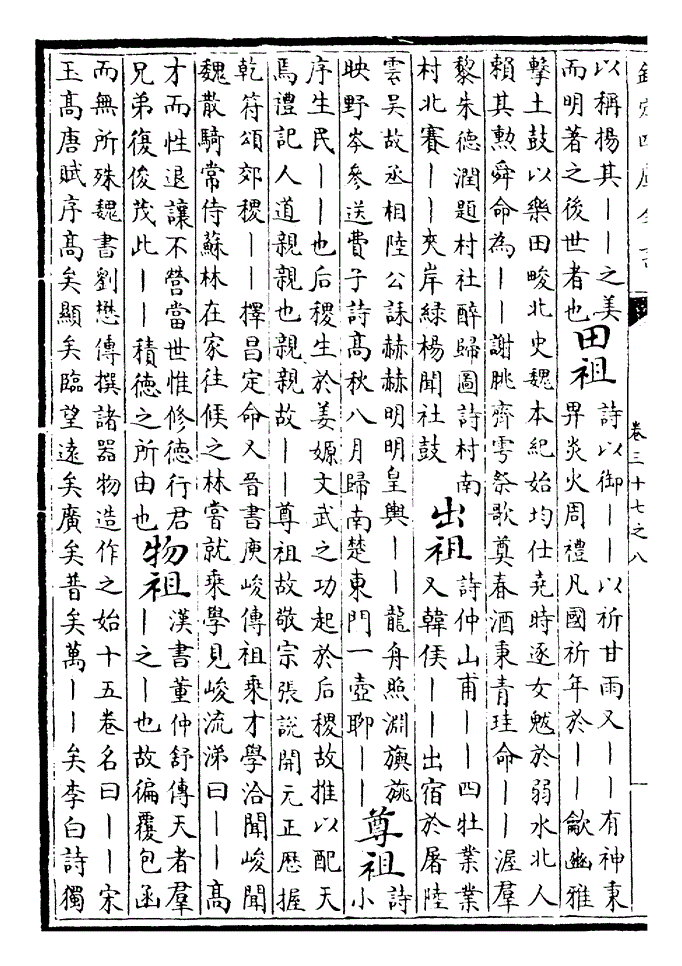 欽定四庫全書
卷三十七之八
以稱揚其丨丨之美
而明著之後世者也
田祖
詩以御丨丨以祈甘雨又丨丨有神秉
畀炎火周禮凡國祈年於丨丨龡豳雅
擊土鼓以樂田畯北史魏本紀始均仕堯時逐女魃於弱水北人
賴其勲舜命為丨丨謝朓齊雩祭歌奠春酒秉青珪命丨丨渥群
黎朱德潤題村社醉歸圖詩村南
村北賽丨丨夾岸緑楊聞社鼓
出祖
詩仲山甫丨丨四牡業業
又韓侯丨丨出宿於屠陸
雲吳故丞相陸公誄赫赫明明皇輿丨丨龍舟照淵旟旐
映野岑參送費子詩高秋八月歸南楚東門一壺聊丨丨
尊祖
詩
小
序生民丨丨也后稷生於姜嫄文武之功起於后稷故推以配天
焉禮記人道親親也親親故丨丨尊祖故敬宗張說開元正歷握
乾符頌郊稷丨丨擇昌定命又晉書庾峻傳祖乘才學洽聞峻聞
魏散騎常侍蘇林在家往候之林嘗就乘學見峻流涕曰丨丨高
才而性退讓不營當世惟修德行君
兄弟復俊茂此丨丨積德之所由也
物祖
漢書董仲舒傳天者羣
丨之丨也故徧覆包函
而無所殊魏書劉懋傳撰諸器物造作之始十五卷名曰丨丨宋
玉高唐賦序高矣顯矣臨望遠矣廣矣普矣萬丨丨矣李白詩獨